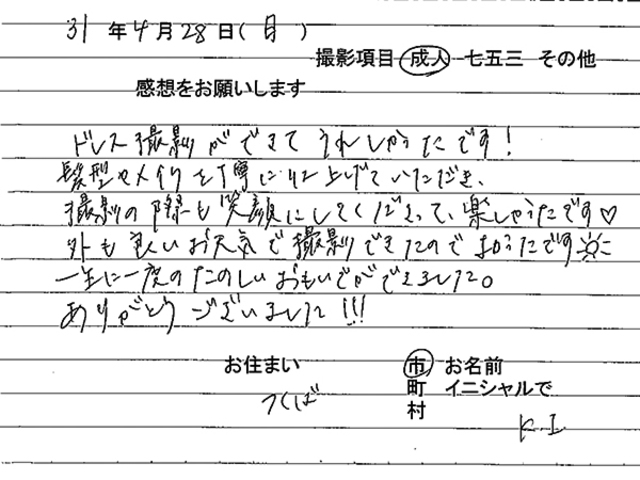 31年4月28日(日)
撮影項目 成人 七五三 その他
感想をお願いします
ドレス撮影ができてうれしかったです!
髪型やメイクを丁寧に仕上げていただき、
撮影の際も笑顔にしてくださって、楽しかったです♡
外も良いお天気で撮影できたのでよかったです☀
一生に一度のたのしいおもいでができました。
ありがとうございました!!!
お住まい 市 お名前
つくば 町 イニシャルで
村
K I